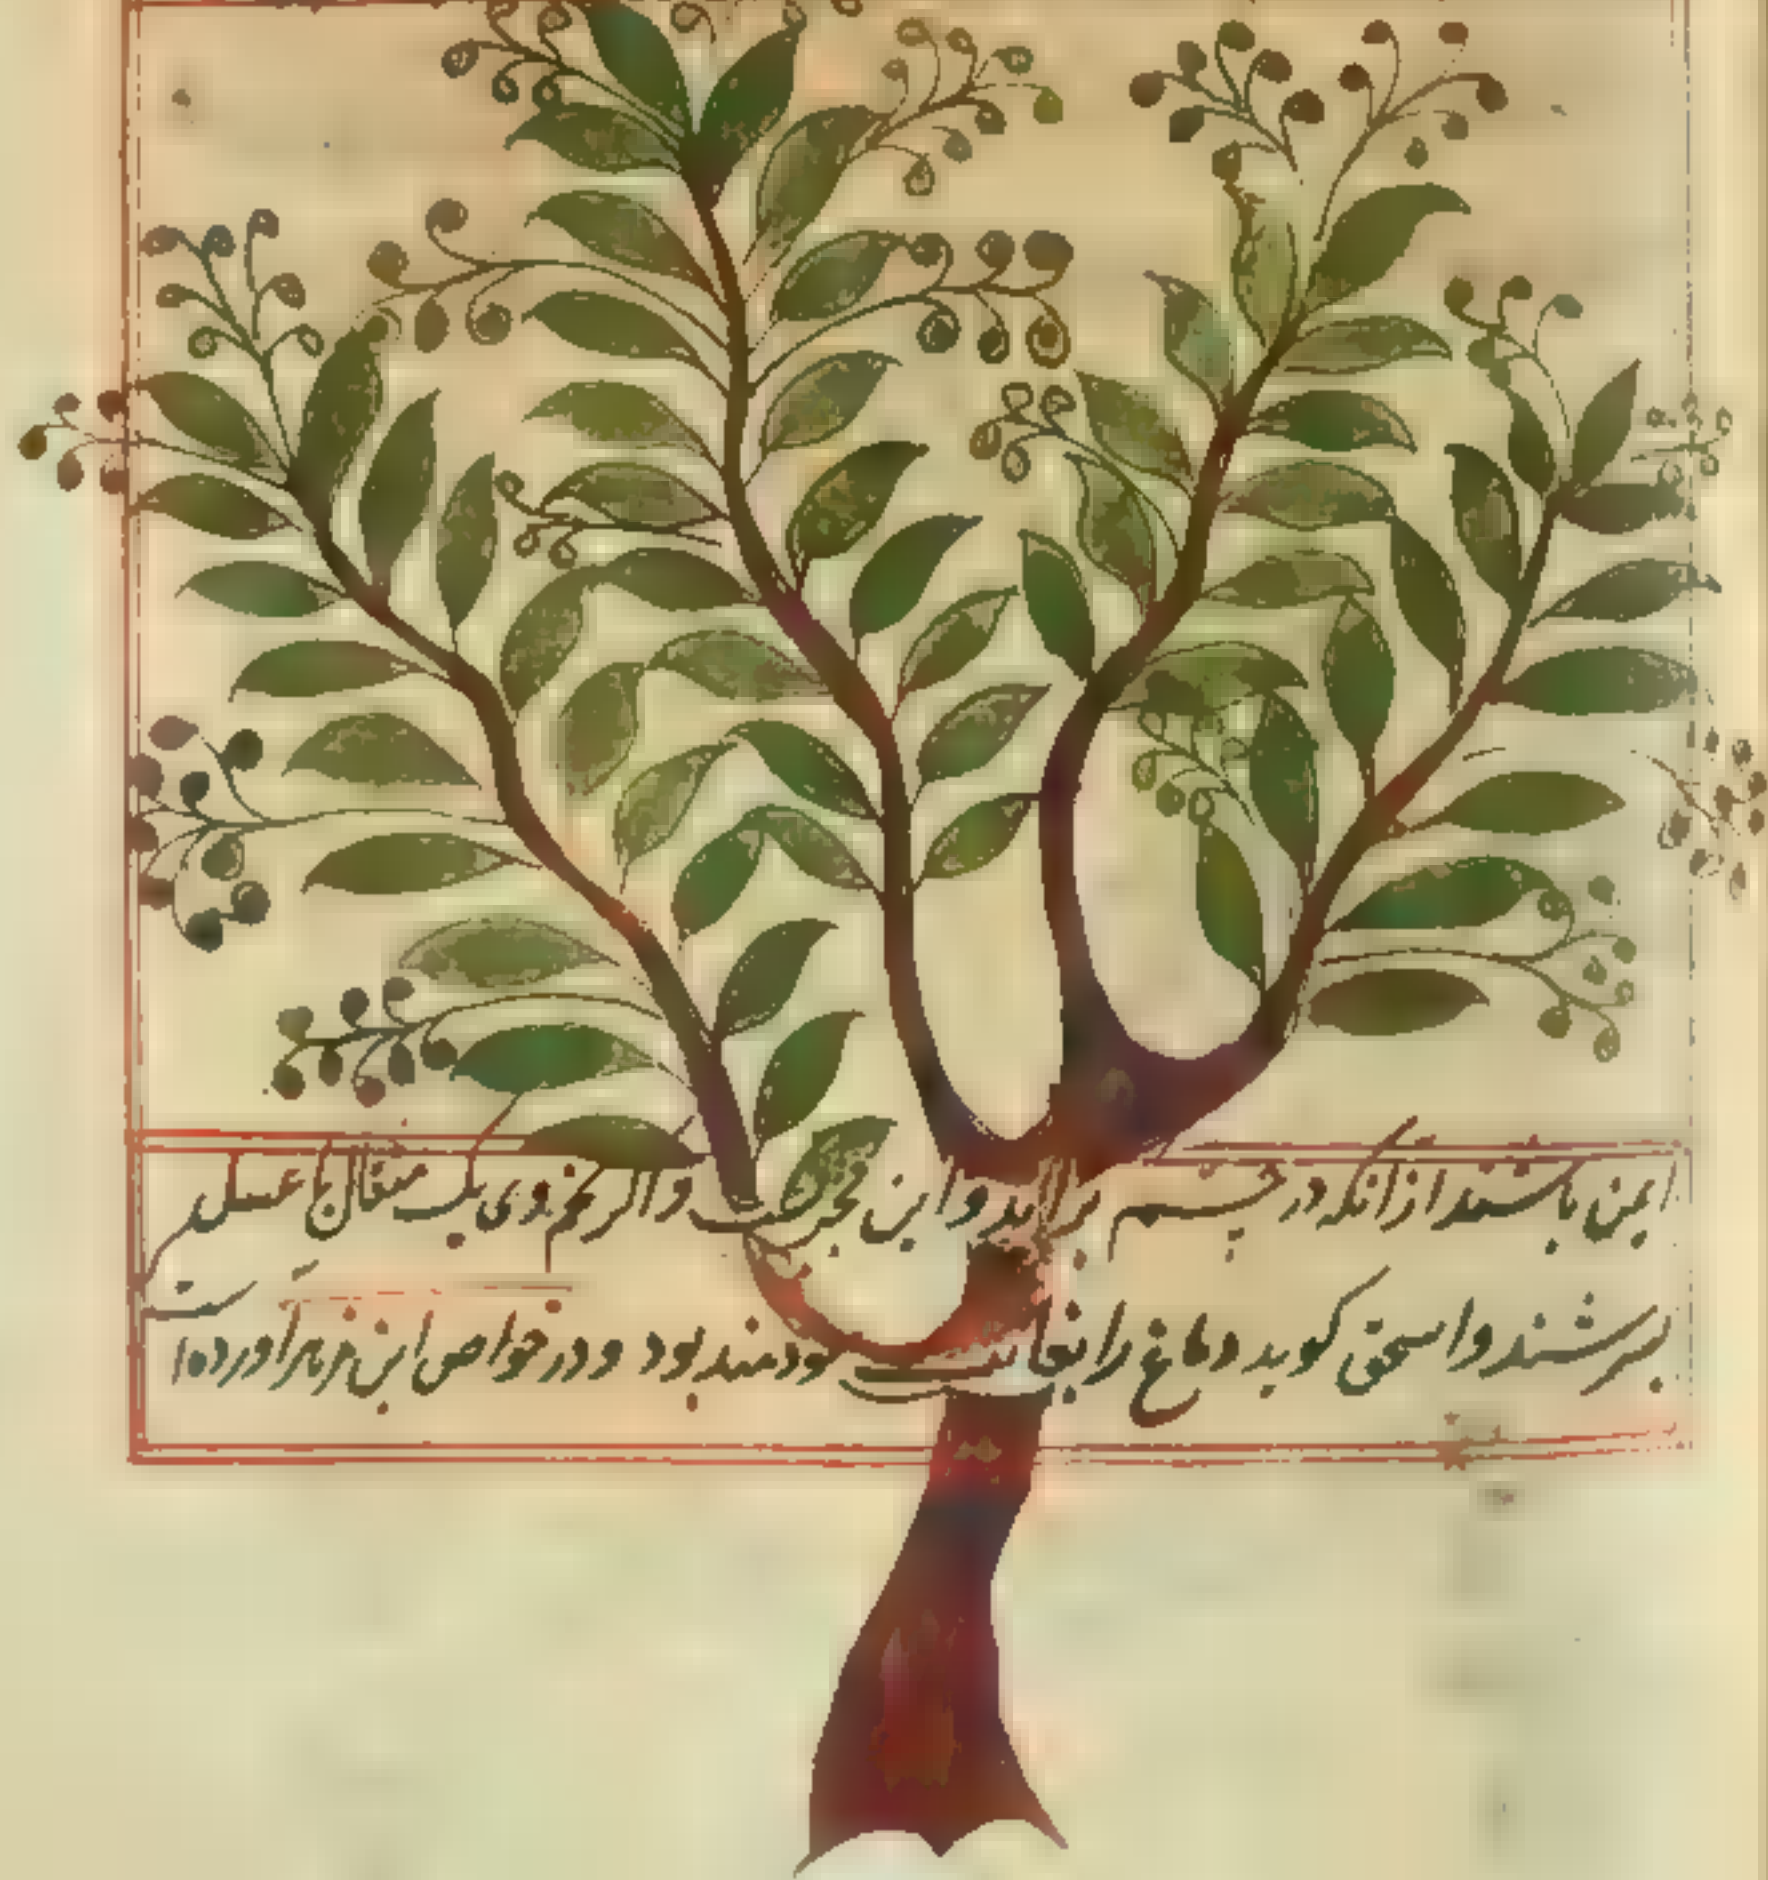 ایمن باشند از آنکه در چشم برآید و این مجرب است و اگر تخم وی یک مثقال با عسل
بسرشند و اسحق گوید دماغ را بغایت سودمند بود و در خواص ابن زهر آورده است